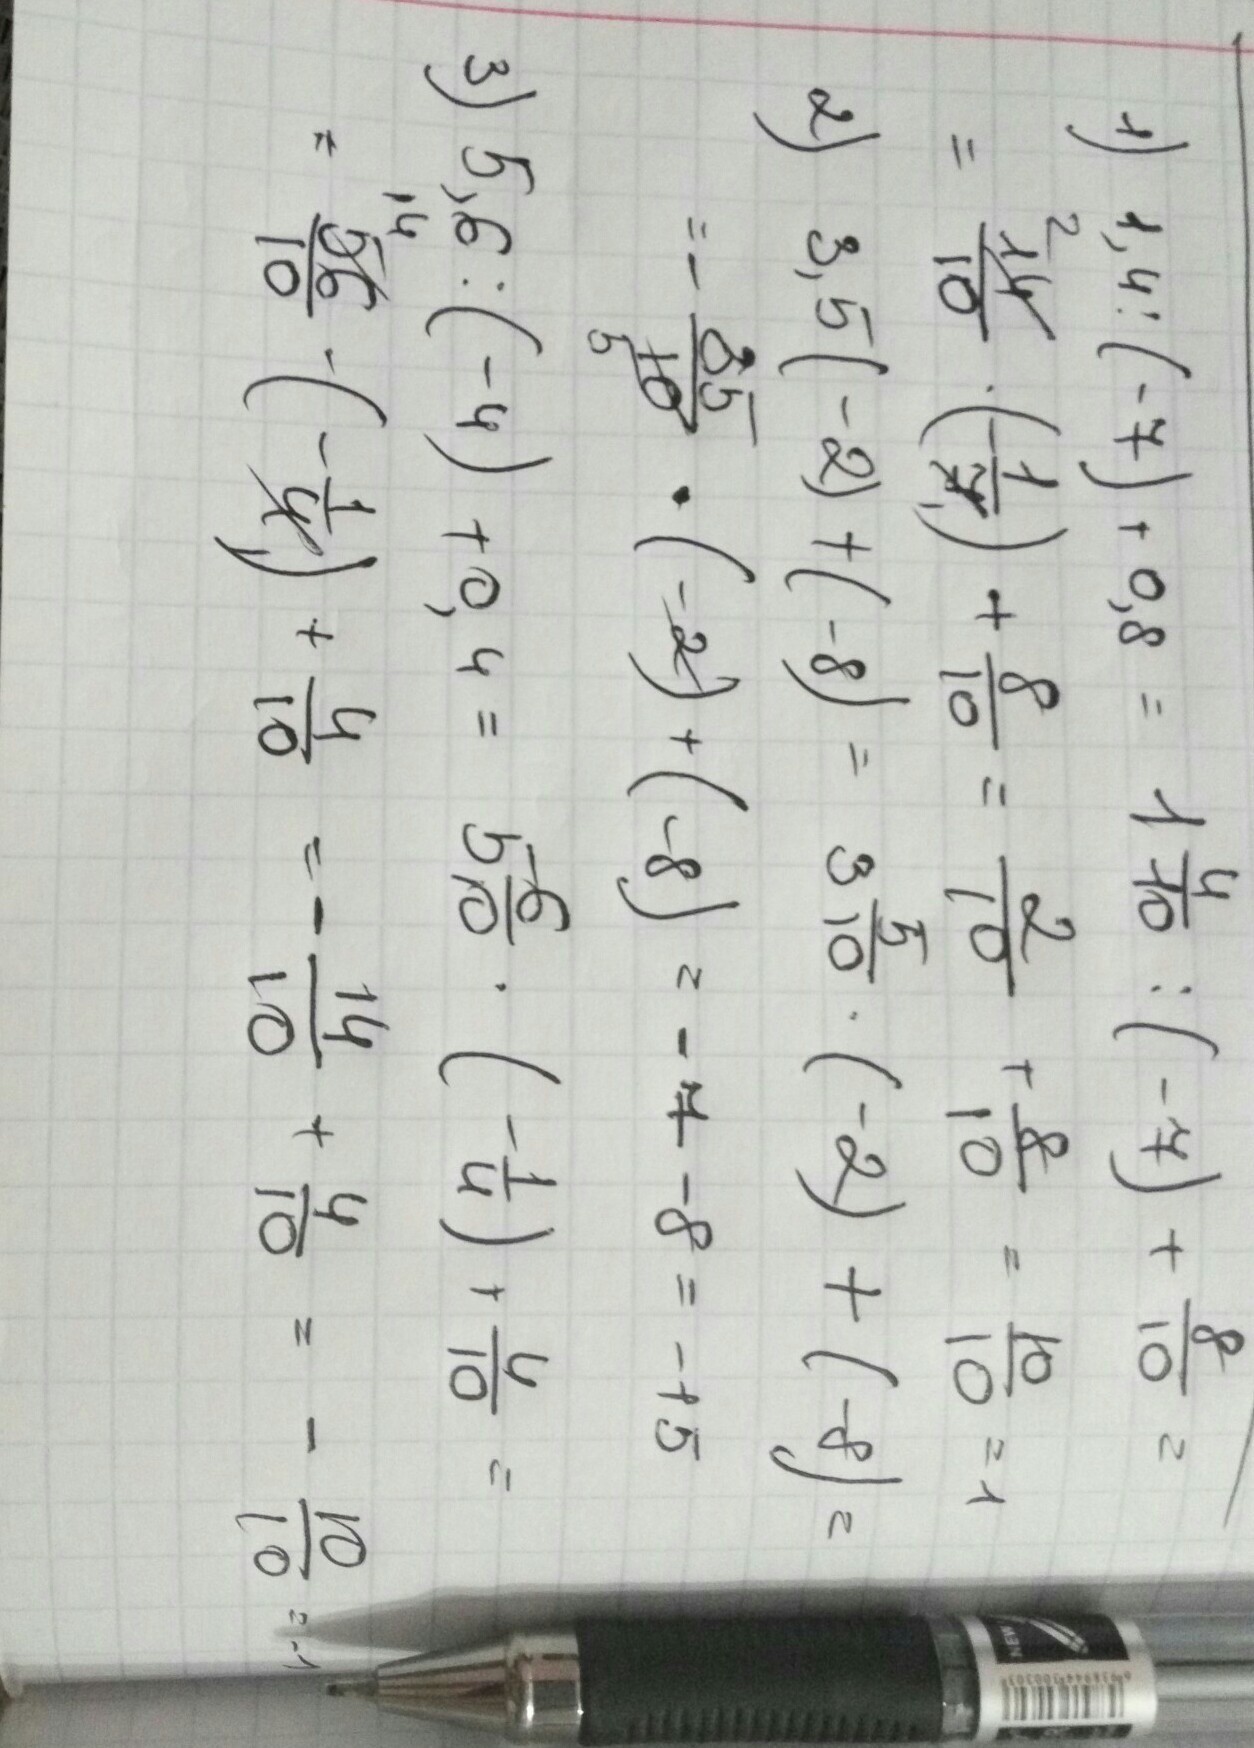 1) 1,4 : (-7) + 0,8 = 1 4/10 : (-7) + 8/10 =
= 2 14/10 · (-1/7) + 8/10 = 2/10 + 8/10 = 10/10 = 1
2) 3,5 (-2) + (-8) = 3 5/10 · (-2) + (-8) =
= - 35/10 5 · (-2) + (-8) = -7 -8 = -15
3) 5,6 : (-4) + 0,4 = 5 6/10 · (-1/4) + 4/10 =
= 14 56/10 · (-1/4) + 4/10 = - 14/10 + 4/10 = - 10/10 = -1
NEW